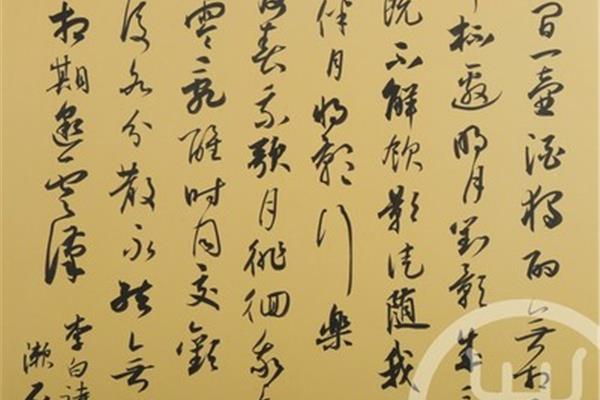 間一壺酒獨酌無相
杯邀明月對影成三
既不解飲影徒隨我
伴月將影行樂
春我歌月徘徊我
零亂醒時同交歡
後各分散永結無
相期邈雲漢
李白詩
漱